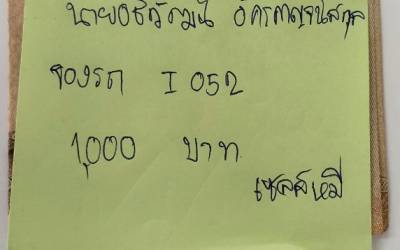 นายอธิวัฒน์ อัครกาญจน์สกุล
จองรถ I 052
1,000 บาท
เซลล์หมี